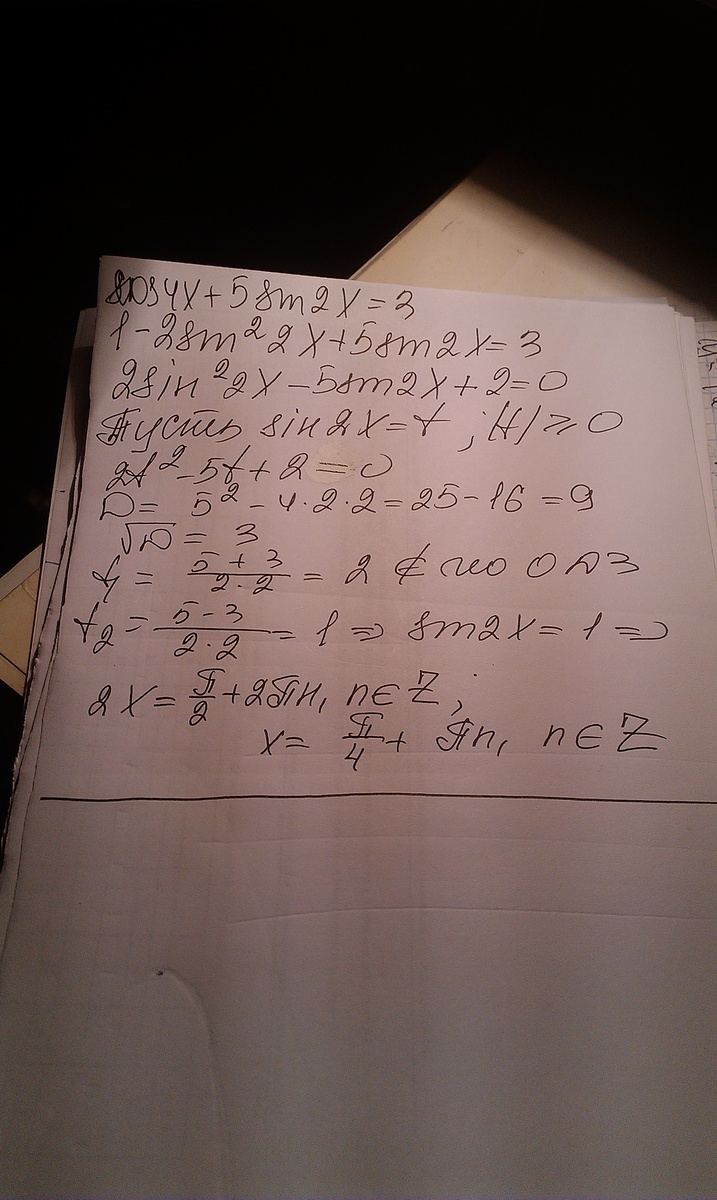 cos4x + 5sin2x = 3
1 - 2sin² 2x + 5sin2x = 3
2sin²2x - 5sin2x + 2 = 0
Пусть sin2x = t ; |t| ≥ 0
2t² - 5t + 2 = 0
D = 5² - 4·2·2 = 25 - 16 = 9
√D = 3
t₁ = (5 + 3)/(2·2) = 2 ∉ по ОДЗ
t₂ = (5 - 3)/(2·2) = 1 => sin2x = 1 =>
2x = π/2 + 2πn, n∈Z ;
x = π/4 + πn, n∈Z